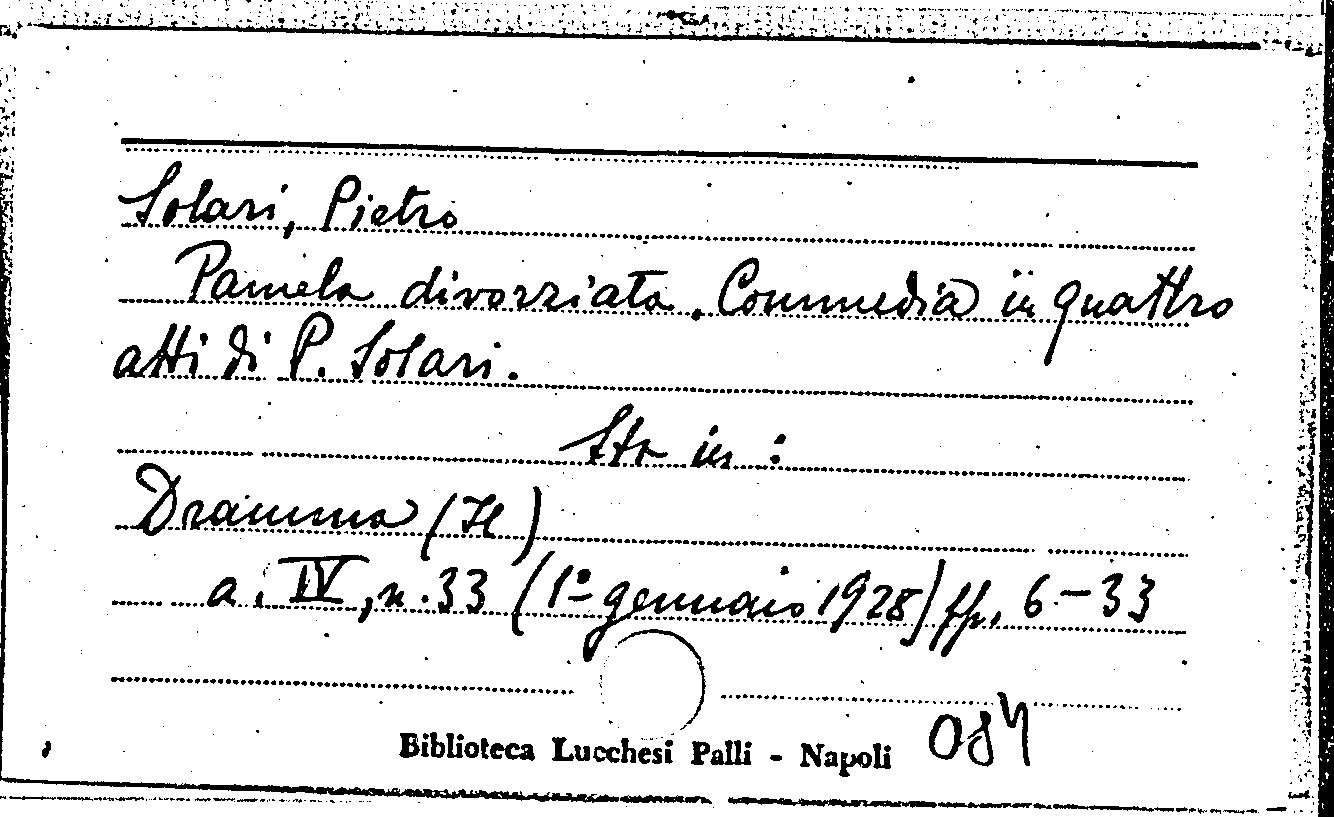 Solari, Pietro
Pamela divorziata. Commedia in quattro
atti di P. Solari.
Sta in:
Dramma (Il)
a. IV, n. 33 (1º gennaio 1928) pp. 6-33
Biblioteca Lucchesi Palli - Napoli